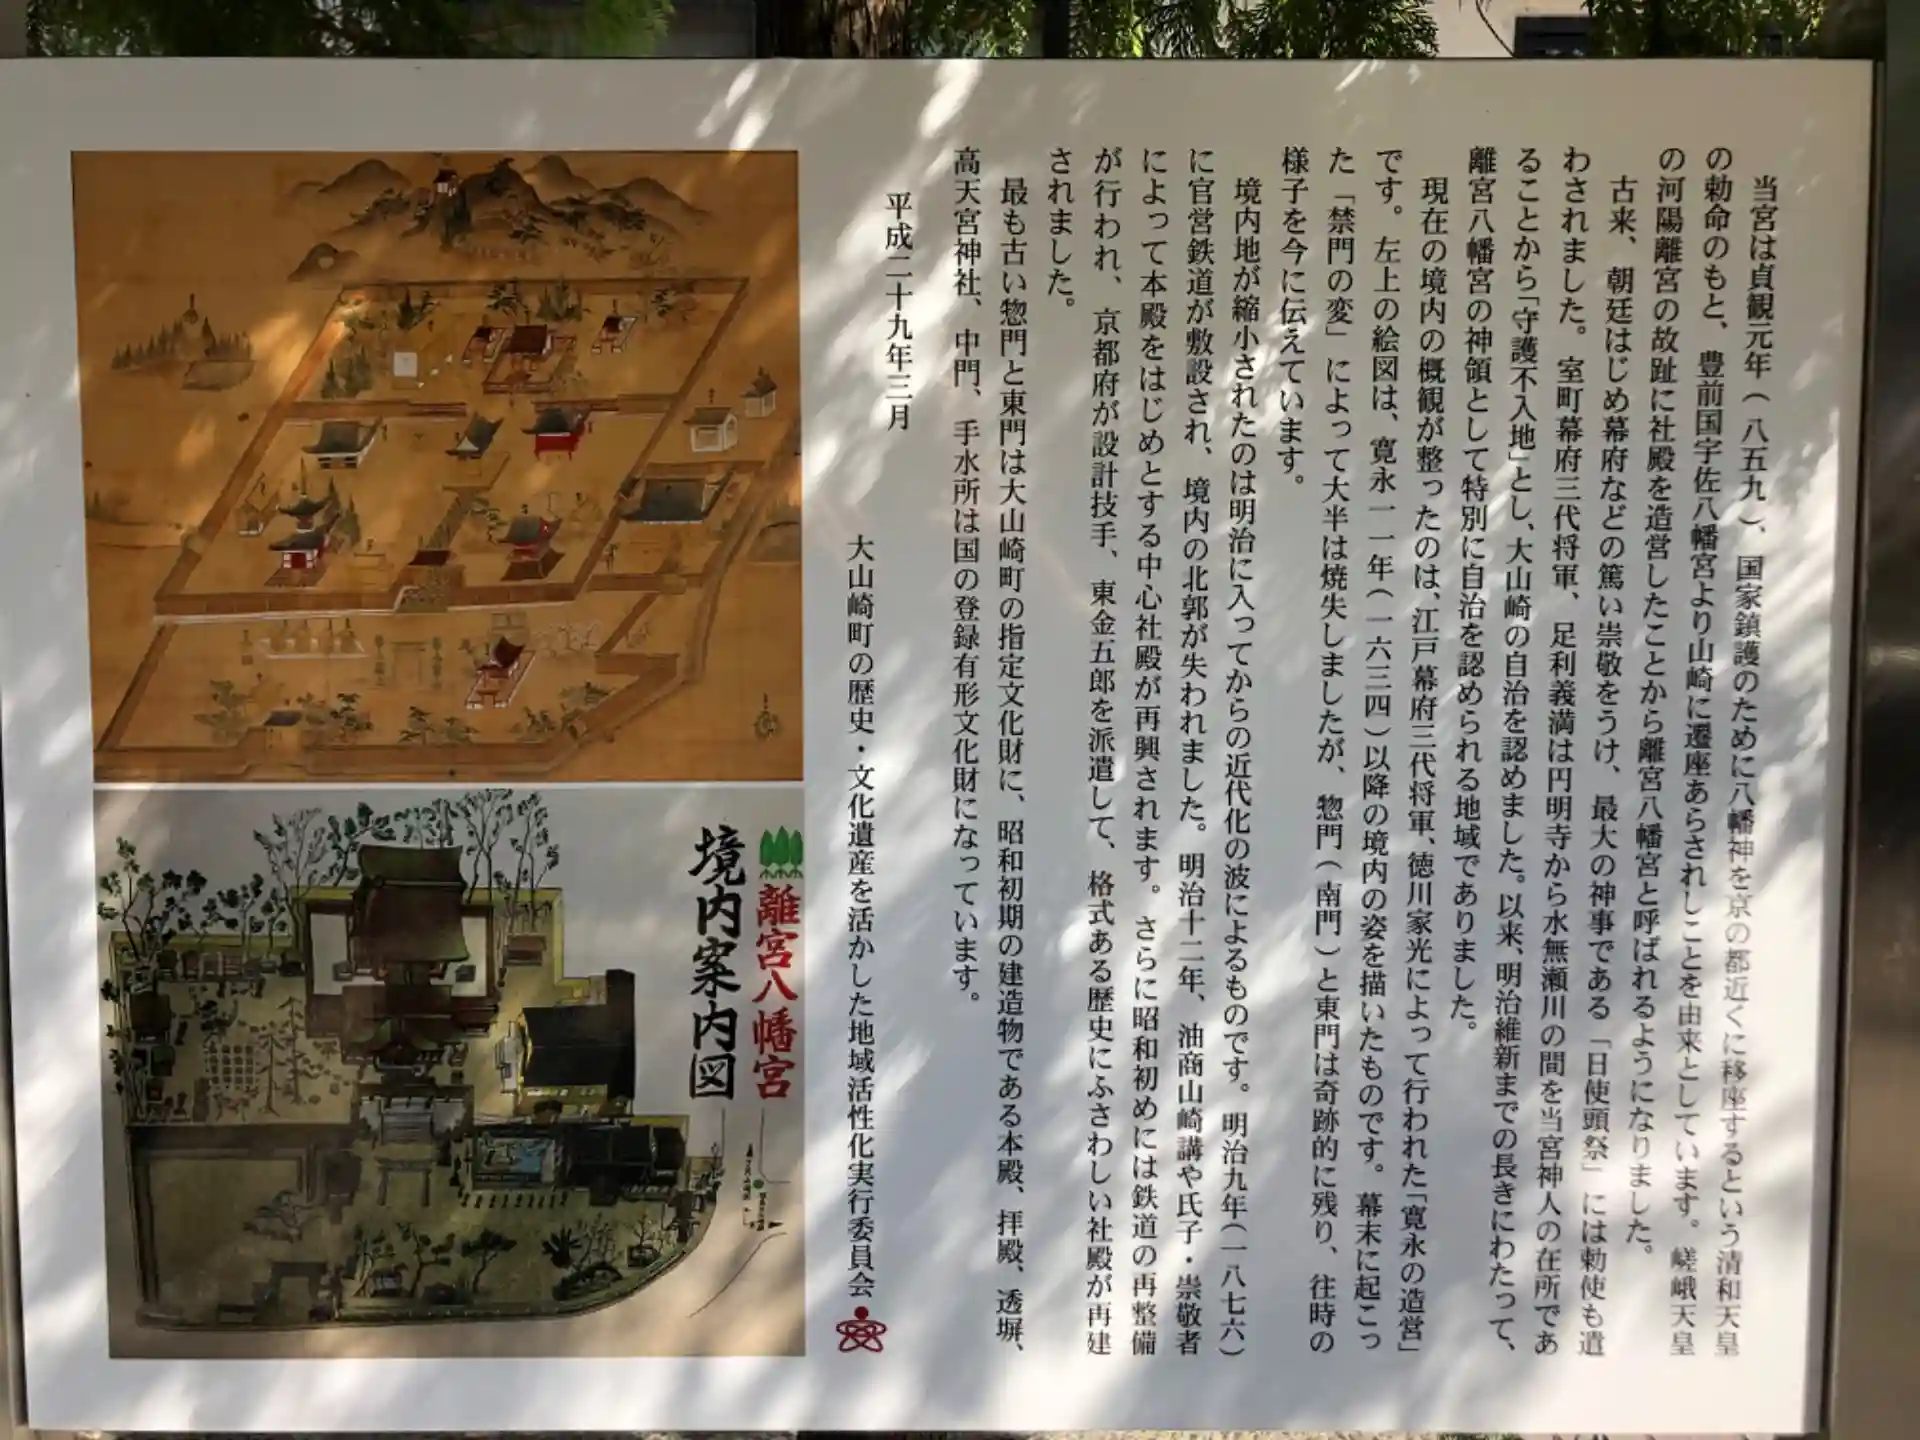 当宮は貞観元年(八五九)、国家鎮護のために八幡神を京の都近くに移座するという清和天皇
の勅命のもと、豊前国宇佐八幡宮より山崎に遷座あらされしことを由来としています。嵯峨天皇
の河陽離宮の故趾に社殿を造営したことから離宮八幡宮と呼ばれるようになりました。
古来、朝廷はじめ幕府などの篤い崇敬をうけ、最大の神事である「日使頭祭」には勅使も遣
わされました。室町幕府三代将軍、足利義満は円明寺から水無瀬川の間を当宮神人の在所であ
ることから「守護不入地」とし、大山崎の自治を認めました。以来、明治維新までの長きにわたって、
離宮八幡宮の神領として特別に自治を認められる地域でありました。
現在の境内の概観が整ったのは、江戸幕府三代将軍、徳川家光によって行われた「寛永の造営」
です。左上の絵図は、寛永一一年(一六三四)以降の境内の姿を描いたものです。幕末に起こっ
た「禁門の変」によって大半は焼失しましたが、惣門(南門)と東門は奇跡的に残り、往時の
様子を今に伝えています。
境内地が縮小されたのは明治に入ってからの近代化の波によるものです。明治九年(一八七六)
に官営鉄道が敷設され、境内の北郭が失われました。明治十二年、油商山崎講や氏子・崇敬者
によって本殿をはじめとする中心社殿が再興されます。さらに昭和初めには鉄道の再整備
が行われ、京都府が設計技手、東金五郎を派遣して、格式ある歴史にふさわしい社殿が再建
されました。
最も古い惣門と東門は大山崎町の指定文化財に、昭和初期の建造物である本殿、拝殿、透塀、
高天宮神社、中門、手水所は国の登録有形文化財になっています。
平成二十九年三月
大山崎町の歴史・文化遺産を活かした地域活性化実行委員会
離宮八幡宮
境内案内図